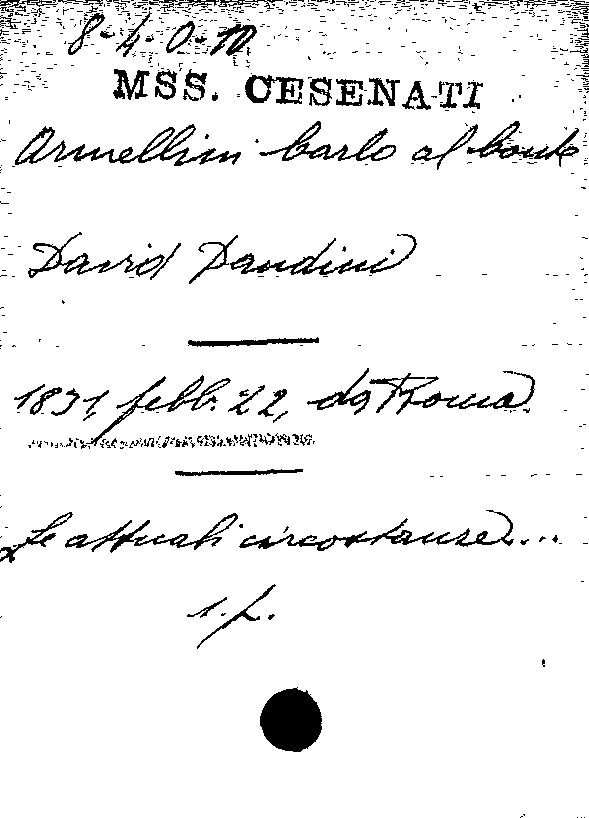 8-4-0-10
MSS. CESENATI
Armellini Carlo al Conte
David Dandini
1831, febb. 22, da Roma.
Le attuali circostanze....
1. f.